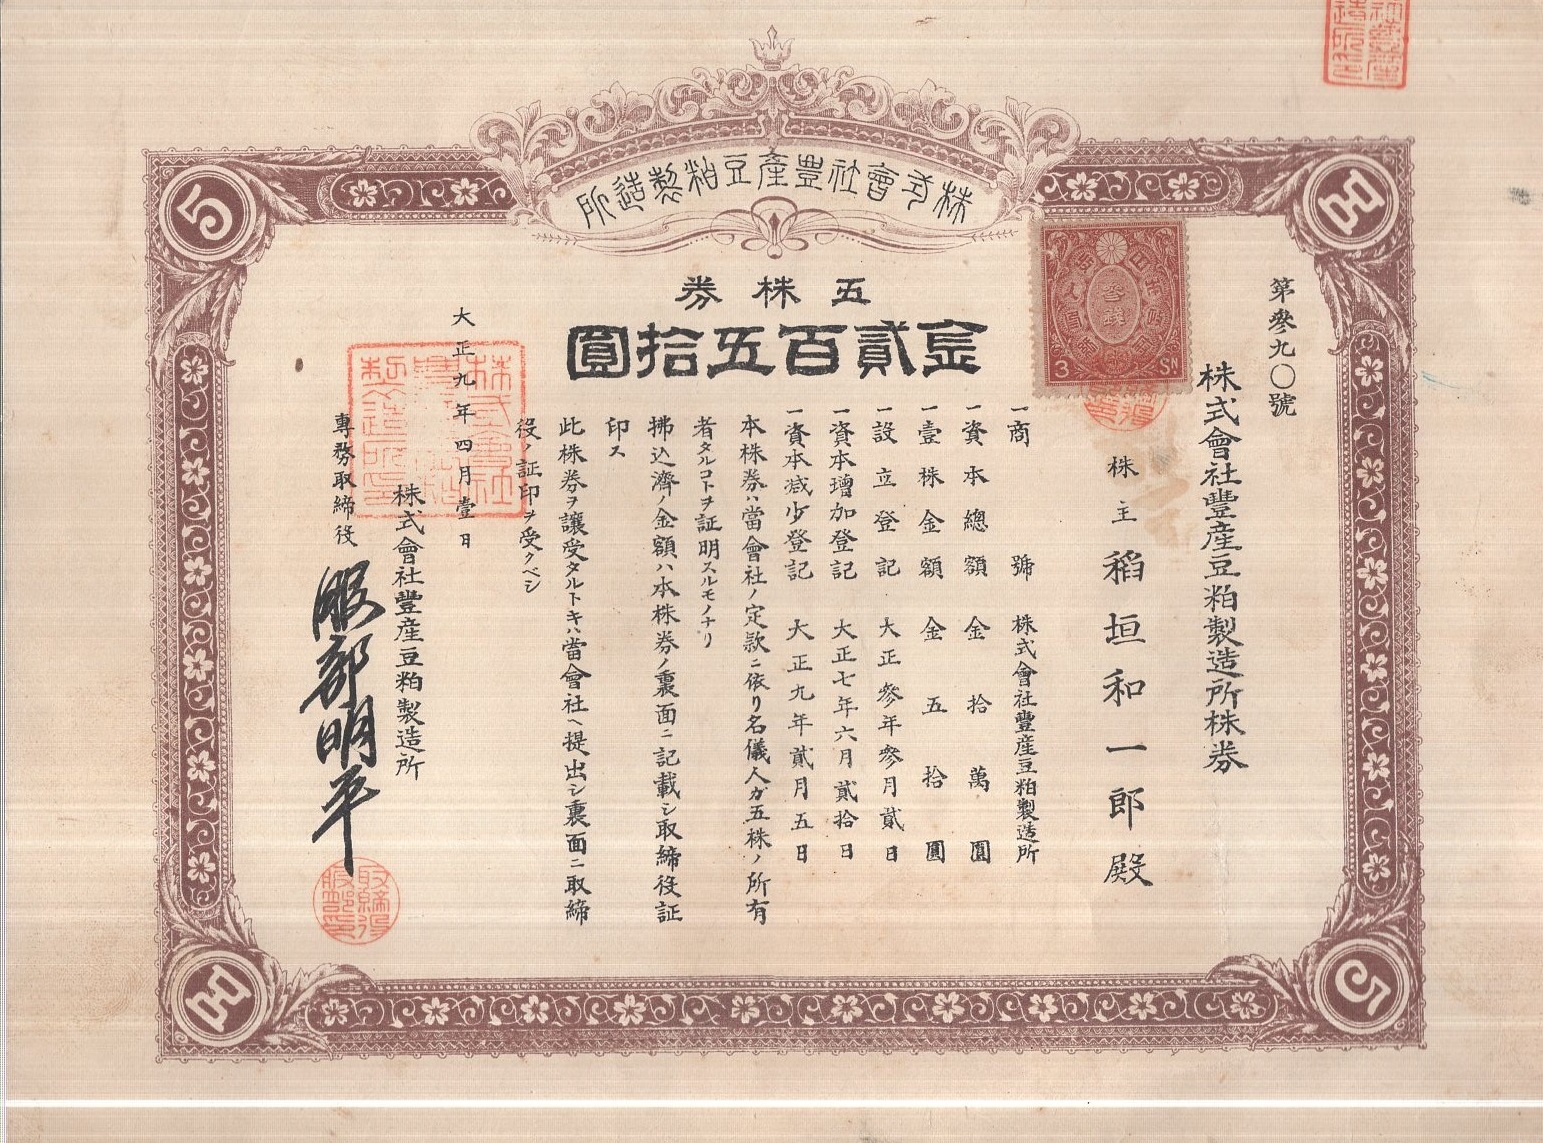 株式會社豊產豆粕製造所
五株券
金貳百五拾圓
第參九〇號
株式會社豐産豆粕製造所株券
株主 稻垣和一郎殿
一商號 株式會社豐産豆粕製造所
一資本總額 金拾萬圓
一壹株金額 金五拾圓
一設立登記 大正參年參月貳日
一資本增加登記 大正七年六月貳拾日
一資本減少登記 大正九年貳月五日
本株券ハ當會社ノ定款ニ依リ名儀人ガ五株ノ所有
者タルコトヲ証明スルモノナリ
拂込濟ノ金額ハ本株券ノ裏面ニ記載シ取締役証
印ス
此株券ヲ讓受タルトキハ當會社ヘ提出シ裏面ニ取締
役ノ証印ヲ受クベシ
大正九年四月壹日
株式會社豐産豆粕製造所
專務取締役 服部明平
5
五
五
5
參錢
3 Sn
株式會社
製造所印
取締役
服部印